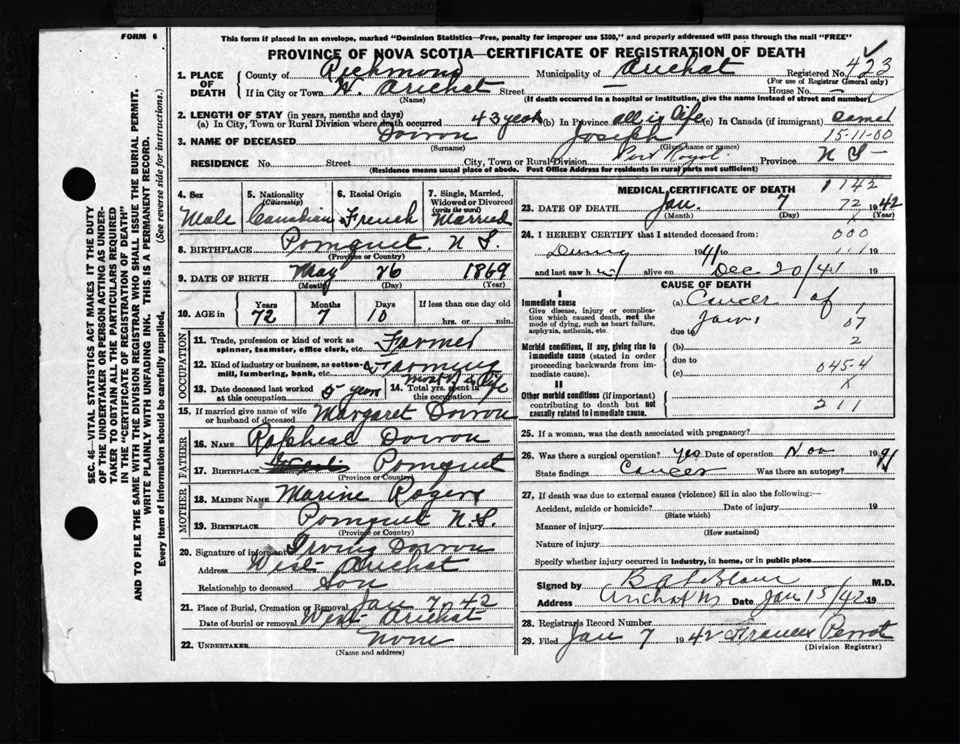 FORM 6
This form if placed in an envelope, marked "Dominion Statistics—Free, penalty for improper use $300," and properly addressed will pass through the mail "FREE"
PROVINCE OF NOVA SCOTIA—CERTIFICATE OF REGISTRATION OF DEATH
1. PLACE OF DEATH County of Richmond Municipality of Arichat Registered No. 423
(For use of Registrar General only)
If in City or Town W. Arichat Street — House No. —
(Name) (If death occurred in a hospital or institution, give the name instead of street and number)
2. LENGTH OF STAY (in years, months and days)
(a) In City, Town or Rural Division where death occurred 43 years (b) In Province all his life (c) In Canada (if immigrant)
3. NAME OF DECEASED Doiron Joseph 15-11-00
(Surname) (Given name or names)
RESIDENCE No. Street City, Town or Rural Division Port Royal Province N S
(Residence means usual place of abode. Post Office Address for residents in rural parts not sufficient)
4. Sex Male
5. Nationality (Citizenship) Canadian
6. Racial Origin French
7. Single, Married, Widowed or Divorced (write the word) Married
8. BIRTHPLACE Pomquet N. S.
(Province or Country)
9. DATE OF BIRTH May 26 1869
(Month) (Day) (Year)
10. AGE in Years 72 Months 7 Days 10 If less than one day old hrs. or min.
OCCUPATION
11. Trade, profession or kind of work as spinner, teamster, office clerk, etc. Farmer
12. Kind of industry or business, as cotton-mill, lumbering, bank, etc. Farming
13. Date deceased last worked at this occupation 5 years
14. Total yrs. spent in this occupation most of his life
15. If married give name of wife or husband of deceased Margaret Doiron
FATHER
16. NAME Rapheal Doiron
17. BIRTHPLACE Pomquet
(Province or Country)
MOTHER
18. MAIDEN NAME Marine Rogers
19. BIRTHPLACE Pomquet N.S.
(Province or Country)
20. Signature of informant Irving Doiron
Address West Arichat
Relationship to deceased Son
21. Place of Burial, Cremation or Removal Jan 7, 42
Date of burial or removal West Arichat
22. UNDERTAKER None
(Name and address)
MEDICAL CERTIFICATE OF DEATH 1142
23. DATE OF DEATH Jan. 7 72 1942
(Month) (Day) (Year)
24. I HEREBY CERTIFY that I attended deceased from: 000
During 1941 to 111 19
and last saw h alive on Dec 20/41 19
CAUSE OF DEATH
I
Immediate cause
Give disease, injury or complication which caused death, not the mode of dying, such as heart failure, asphyxia, asthenia, etc.
(a) Cancer of
Jaw. 1
due to 07
Morbid conditions, if any, giving rise to immediate cause (stated in order proceeding backwards from immediate cause).
(b) 2
due to
(c) 045-4
X
II
Other morbid conditions (if important) contributing to death but not causally related to immediate cause. 211
25. If a woman, was the death associated with pregnancy?
26. Was there a surgical operation? Yes Date of operation Nov 1941
State findings Cancer Was there an autopsy?
27. If death was due to external causes (violence) fill in also the following:—
Accident, suicide or homicide? Date of injury 19
(State which)
Manner of injury
(How sustained)
Nature of injury
Specify whether injury occurred in industry, in home, or in public place
Signed by M.D.
Address Arichat NS Date Jan 15/42 19
28. Registrars Record Number
29. Filed Jan 7 1942 Frances Perrot
(Division Registrar)
SEC. 46—VITAL STATISTICS ACT MAKES IT THE DUTY
OF THE UNDERTAKER OR PERSON ACTING AS UNDER-
TAKER TO OBTAIN ALL THE PARTICULARS REQUIRED
IN THE "CERTIFICATE OF REGISTRATION OF DEATH"
AND TO FILE THE SAME WITH THE DIVISION REGISTRAR WHO SHALL ISSUE THE BURIAL PERMIT.
WRITE PLAINLY WITH UNFADING INK. THIS IS A PERMANENT RECORD.
Every item of information should be carefully supplied. (See reverse side for instructions.)